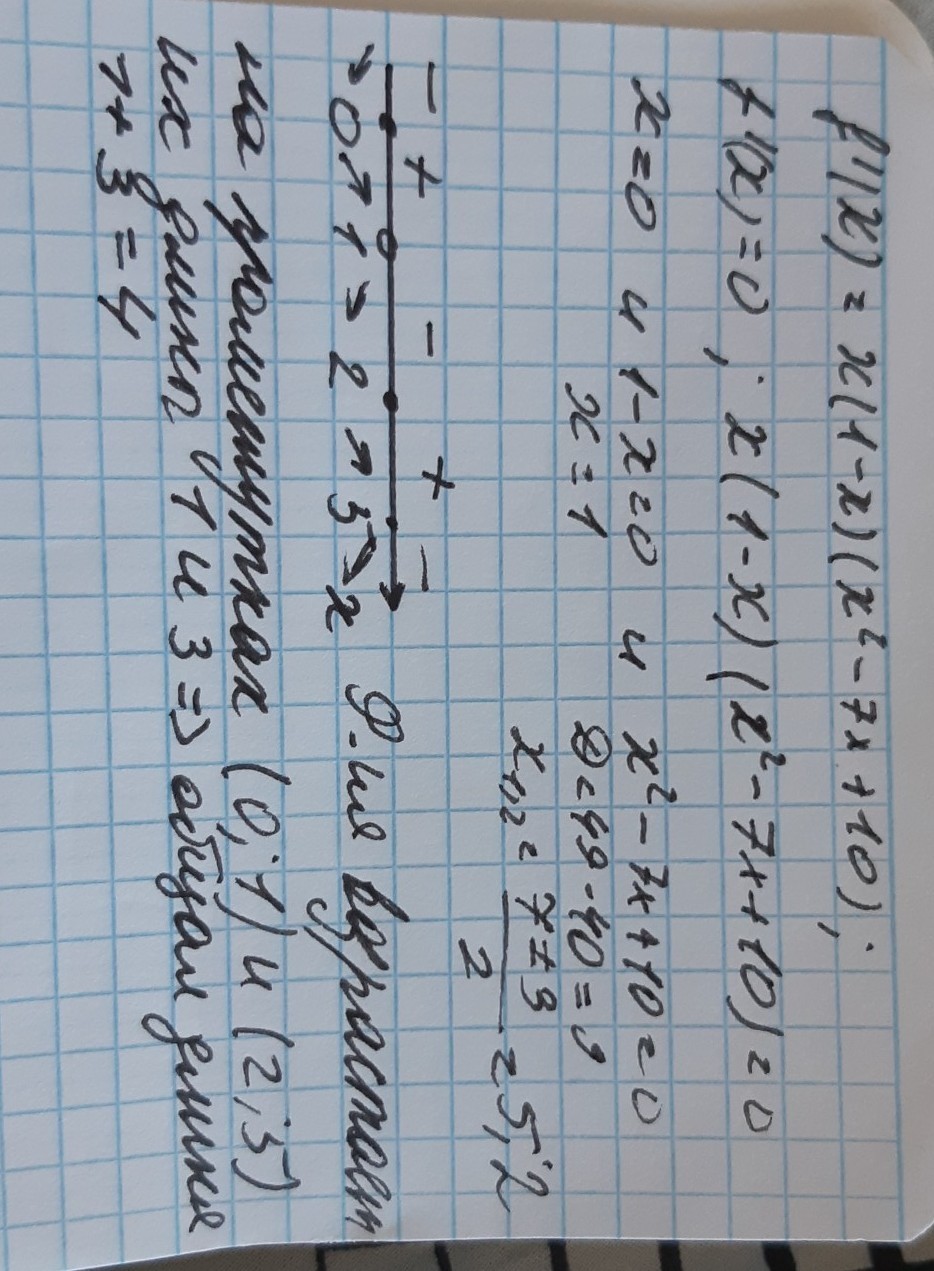 f'(x) = x(1-x)(x²-7x+10);
f'(x)=0; x(1-x)(x²-7x+10)=0
x=0 и 1-x=0 и x²-7x+10=0
x=1 D=49-40=9
x₁,₂ = (7±3)/2 = 5; 2
- + - + -
↘ 0 ↗ 1 ↘ 2 ↗ 5 ↘ x Ф-ия возрастает
на промежутках (0;1) и (2;5)
их длинп 1 и 3 => общая длина
1+3=4